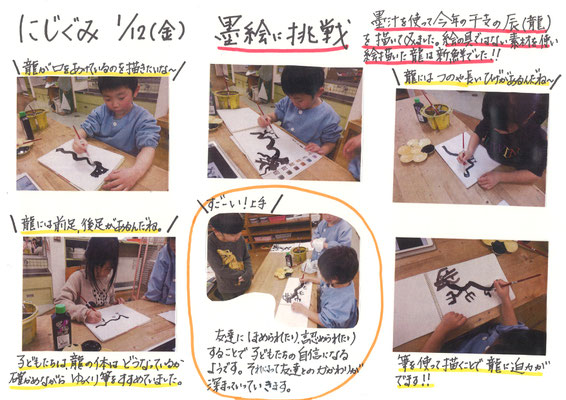 にじぐみ 1/12(金)
墨絵に挑戦
墨汁を使って今年の干支の辰(龍)
を描いてみました。絵の具ではない素材を使い
絵描いた龍は新鮮でした!!
龍が口をあけているのを描きたいな〜
龍にはつのや長いひげがあるんだね〜
龍には前足,後足があるんだね。
すごーい!上手
子どもたちは、龍の体はどうなっているか
確かめながら ゆっくり筆をすすめていました。
友達に ほめられたり、認められたり
することで 子どもたちの自信になる
ようです。それによって友達との
深まっていっていきます。
筆を使って描くことで 龍に迫力が
でます!!